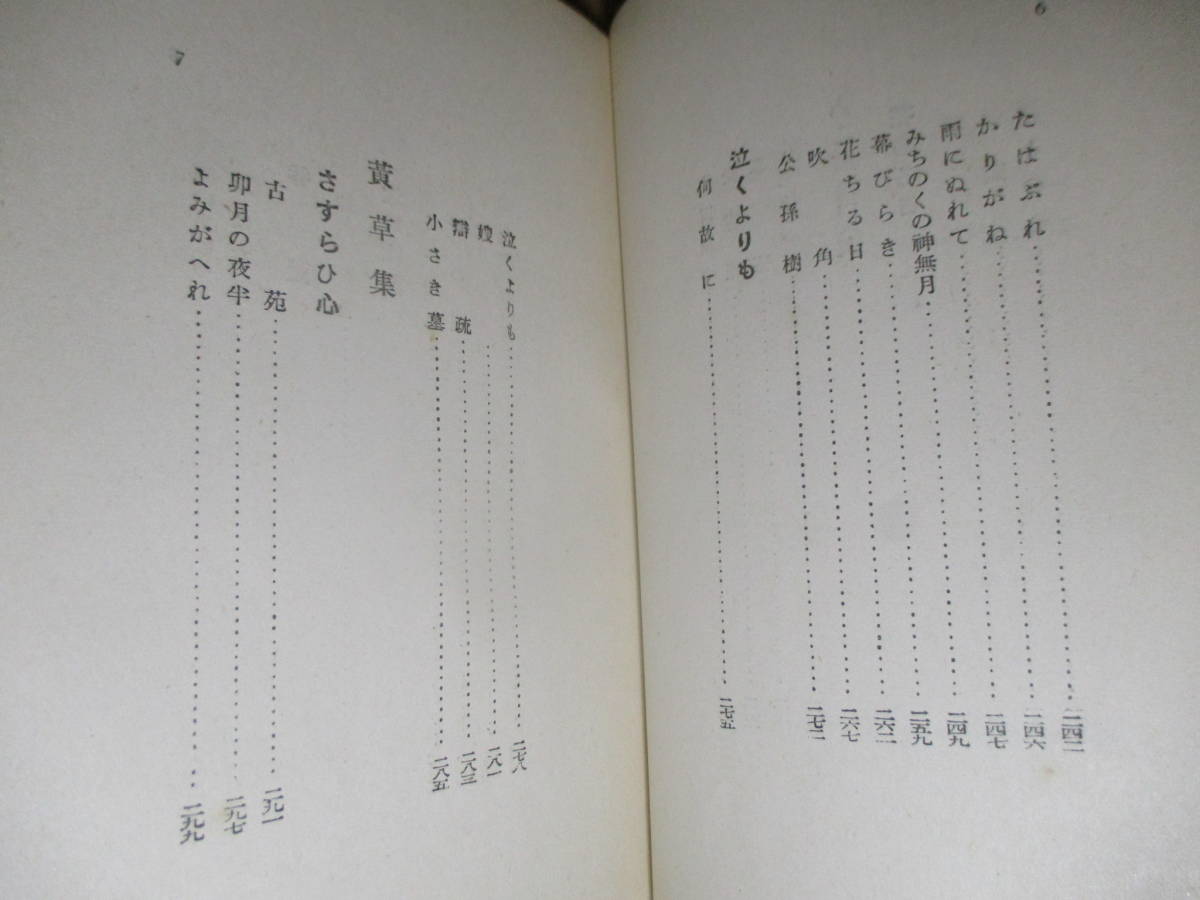 6
たはぶれ……二四二
かりがね……二四六
雨にぬれて……二四七
みちのくの神無月……二四九
幕びらき……二五九
花ちる日……二六二
吹角……二六七
公孫樹……二七二
泣くよりも
何故に……二七五
7
泣くよりも……二七八
嫂……二八一
辯疏……二八三
小さき墓……二八五
黄草集
さすらひ心
古苑……二九一
卯月の夜半……二九七
よみがへれ……二九九